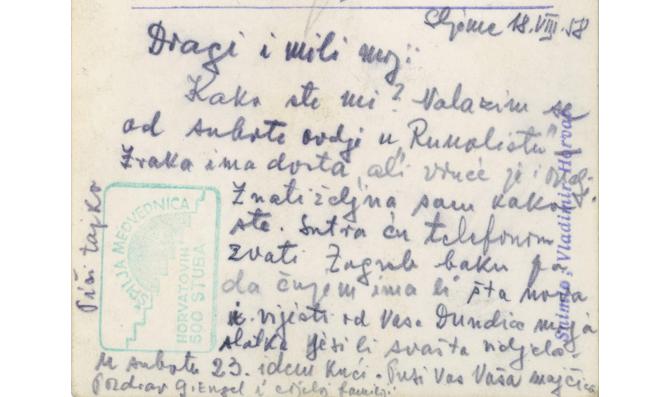 Sljeme 18.VIII.58
Dragi i mili moji
Kako ste mi? Nalazim se
od subote ovdje u „Runolistu"
Zraka ima dosta, ali vruće je i ovdje.
Znatiželjna sam kako
ste. Sutra ću telefonom
zvati Zagreb baku
da čujem ima li šta nova
i vijesti od Vas. Dundić moja
slatka jesi li svašta vidjela
U subotu 23. idem kući. Pusi Vas Vaša majčica
Pozdrav g. Engel i cijeloj familiji
Piši tajko
ŠPILJA MEDVEDNICA
HORVATOVIH
500 STUBA
Snimio: Vladimir Horvat